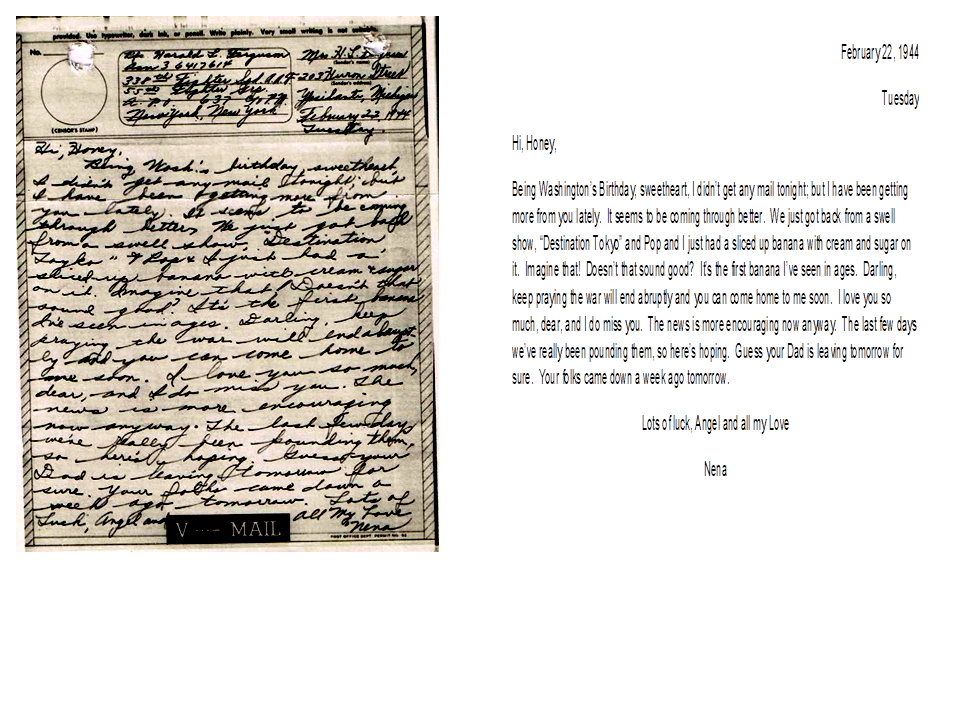 provided. Use typewriter, dark ink, or pencil. Write plainly. Very small writing is not suitable.
No.
(CENSOR'S STAMP)
Harold L. Ferguson
36417614
338th Fighter Sqd. A.A.F.
55th Fighter Grp.
A.P.O. 637 % P.M.
New York, New York
Mrs. H. L. Ferguson
(Sender's name)
203 Huron Street
(Sender's address)
Ypsilanti, Michigan
February 22, 1944
Tuesday.
Hi, Honey,
Being Wash's birthday, sweetheart,
I didn't get any mail tonight; but
I have been getting more from
you lately. It seems to be coming
through better. We just got back
from a swell show, "Destination
Tokyo" & Pop & I just had a
sliced-up banana with cream & sugar
on it. Imagine that! Doesn't that
sound good? It's the first banana
I've seen in ages. Darling, keep
praying the war will end abrupt-
ly and you can come home to
me soon. I love you so much,
dear, and I do miss you. The
news is more encouraging
now anyway. The last few days
we've really been pounding them,
so here's hoping. Guess your
Dad is leaving tomorrow for
sure. Your folks came down a
week ago tomorrow. Lots of
Luck, Angel and all My Love
Nena
V ···– MAIL
POST OFFICE DEPT. PERMIT NO.
February 22, 1944
Tuesday
Hi, Honey,
Being Washington's Birthday, sweetheart, I didn't get any mail tonight; but I have been getting
more from you lately. It seems to be coming through better. We just got back from a swell
show, "Destination Tokyo" and Pop and I just had a sliced up banana with cream and sugar on
it. Imagine that! Doesn't that sound good? It's the first banana I've seen in ages. Darling,
keep praying the war will end abruptly and you can come home to me soon. I love you so
much, dear, and I do miss you. The news is more encouraging now anyway. The last few days
we've really been pounding them, so here's hoping. Guess your Dad is leaving tomorrow for
sure. Your folks came down a week ago tomorrow.
Lots of luck, Angel and all my Love
Nena